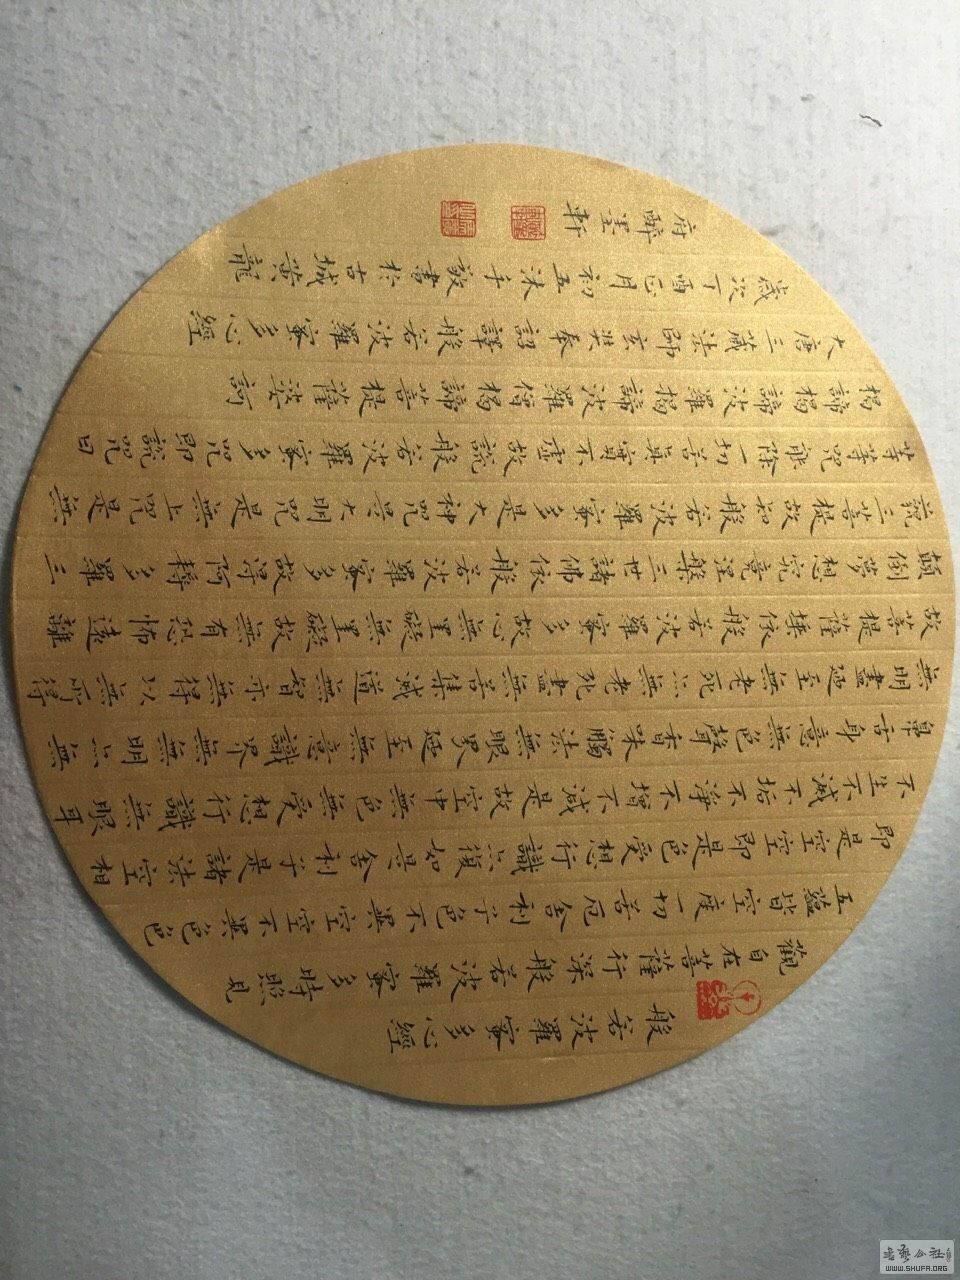 般若波羅蜜多心經
觀自在菩薩行深般若波羅蜜多時照見
五蘊皆空度一切苦厄舍利子色不異空空不異色色
即是空空即是色受想行識亦復如是舍利子是諸法空相
不生不滅不垢不淨不增不減是故空中無色無受想行識無眼耳
鼻舌身意無色聲香味觸法無眼界廼至無意識界無無明亦無
無明盡廼至無老死亦無老死盡無苦集滅道無智亦無得以無所得
故菩提薩埵依般若波羅蜜多故心無罣礙無罣礙故無有恐怖遠離
顛倒夢想究竟涅槃三世諸佛依般若波羅蜜多故得阿耨多羅三
藐三菩提故知般若波羅蜜多是大神咒是大明咒是無上咒是無
等等咒能除一切苦真實不虛故說般若波羅蜜多咒即說咒曰
揭諦揭諦波羅揭諦波羅僧揭諦菩提薩婆訶
大唐三藏法師玄奘奉詔譯般若波羅蜜多心經
歲次丁酉正月初五沐手敬書於古城黃龍
府醉墨軒
WWW.SHUFA.ORG